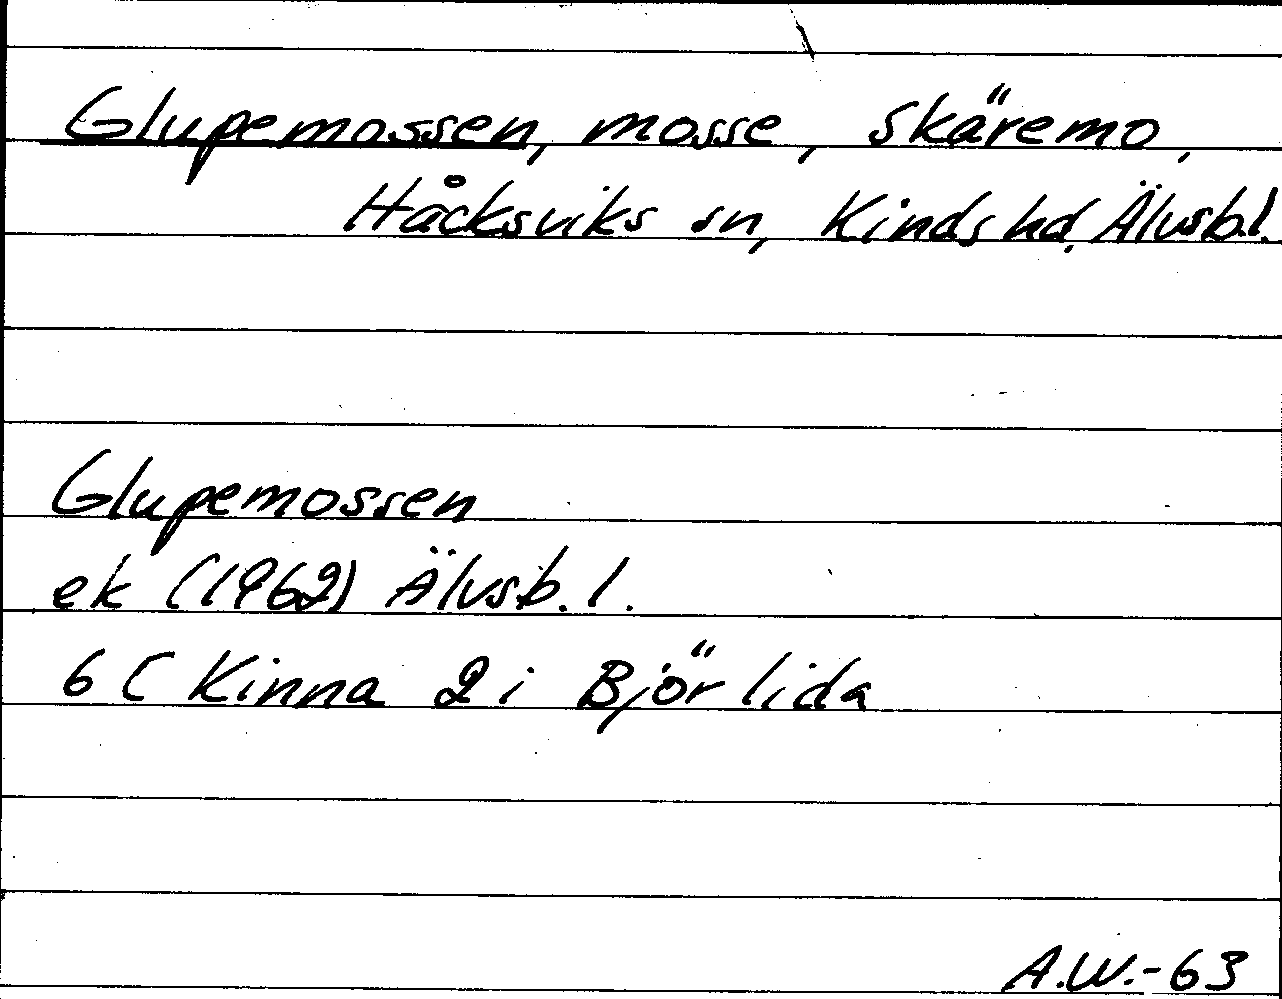 Glupemossen, mosse, Skäremo,
Håcksviks sn, Kinds hd, Älvsb.l.
Glupemossen
ek (1962) Älvsb. l.
6 C Kinna 2 i Björlida
A.W.-63